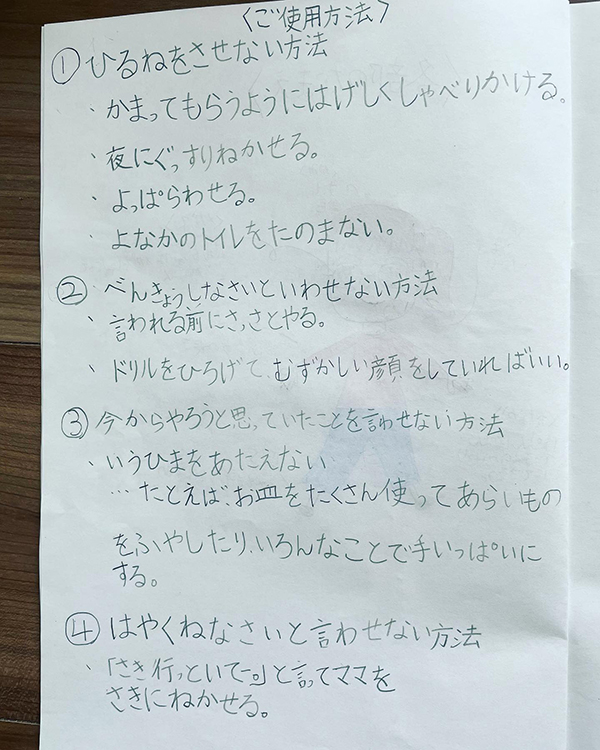 〈ご使用方法〉
① ひるねをさせない方法
、かまってもらうようにはげしくしゃべりかける。
、夜にぐっすりねかせる。
、よっぱらわせる。
、よなかのトイレをたのまない。
② べんきょうしなさいといわせない方法
、言われる前にさっさとやる。
、ドリルをひろげて、むずかしい顔をしていればいい。
③ 今からやろうと思っていたことを言わせない方法
、いうひまをあたえない
…たとえば、お皿をたくさん使ってあらいもの
をふやしたり、いろんなことで手いっぱいに
する。
④ はやくねなさいと言わせない方法
、「さき行っといてー。」と言ってママを
さきにねかせる。